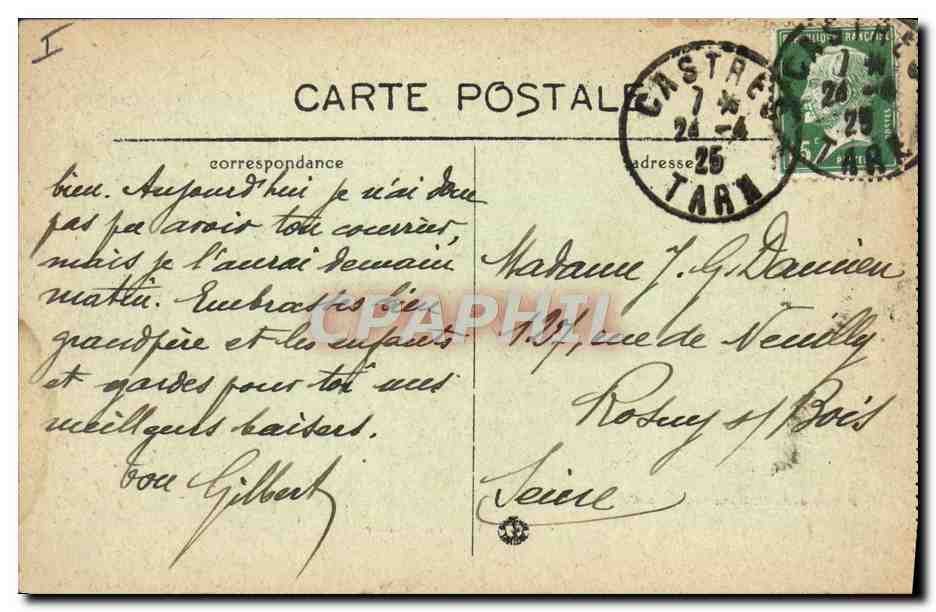 I
CARTE POSTALE
CASTRES
7 *
24 - 4
25
TARN
REPUBLIQUE FRANÇAISE
POSTES
15c
CASTRES
7 *
24 - 4
25
TARN
correspondance
bien. Aujourd'hui je n'ai donc
pas pu avoir ton courrier,
mais je l'aurai demain
matin. Embrasses bien
grandpère et les enfants
et gardes pour toi mes
meilleurs baisers.
ton Gilbert
adresse
Madame J. G. Damien
137, rue de Neuilly
Rosny s/ Bois
Seine
CPAPHIL